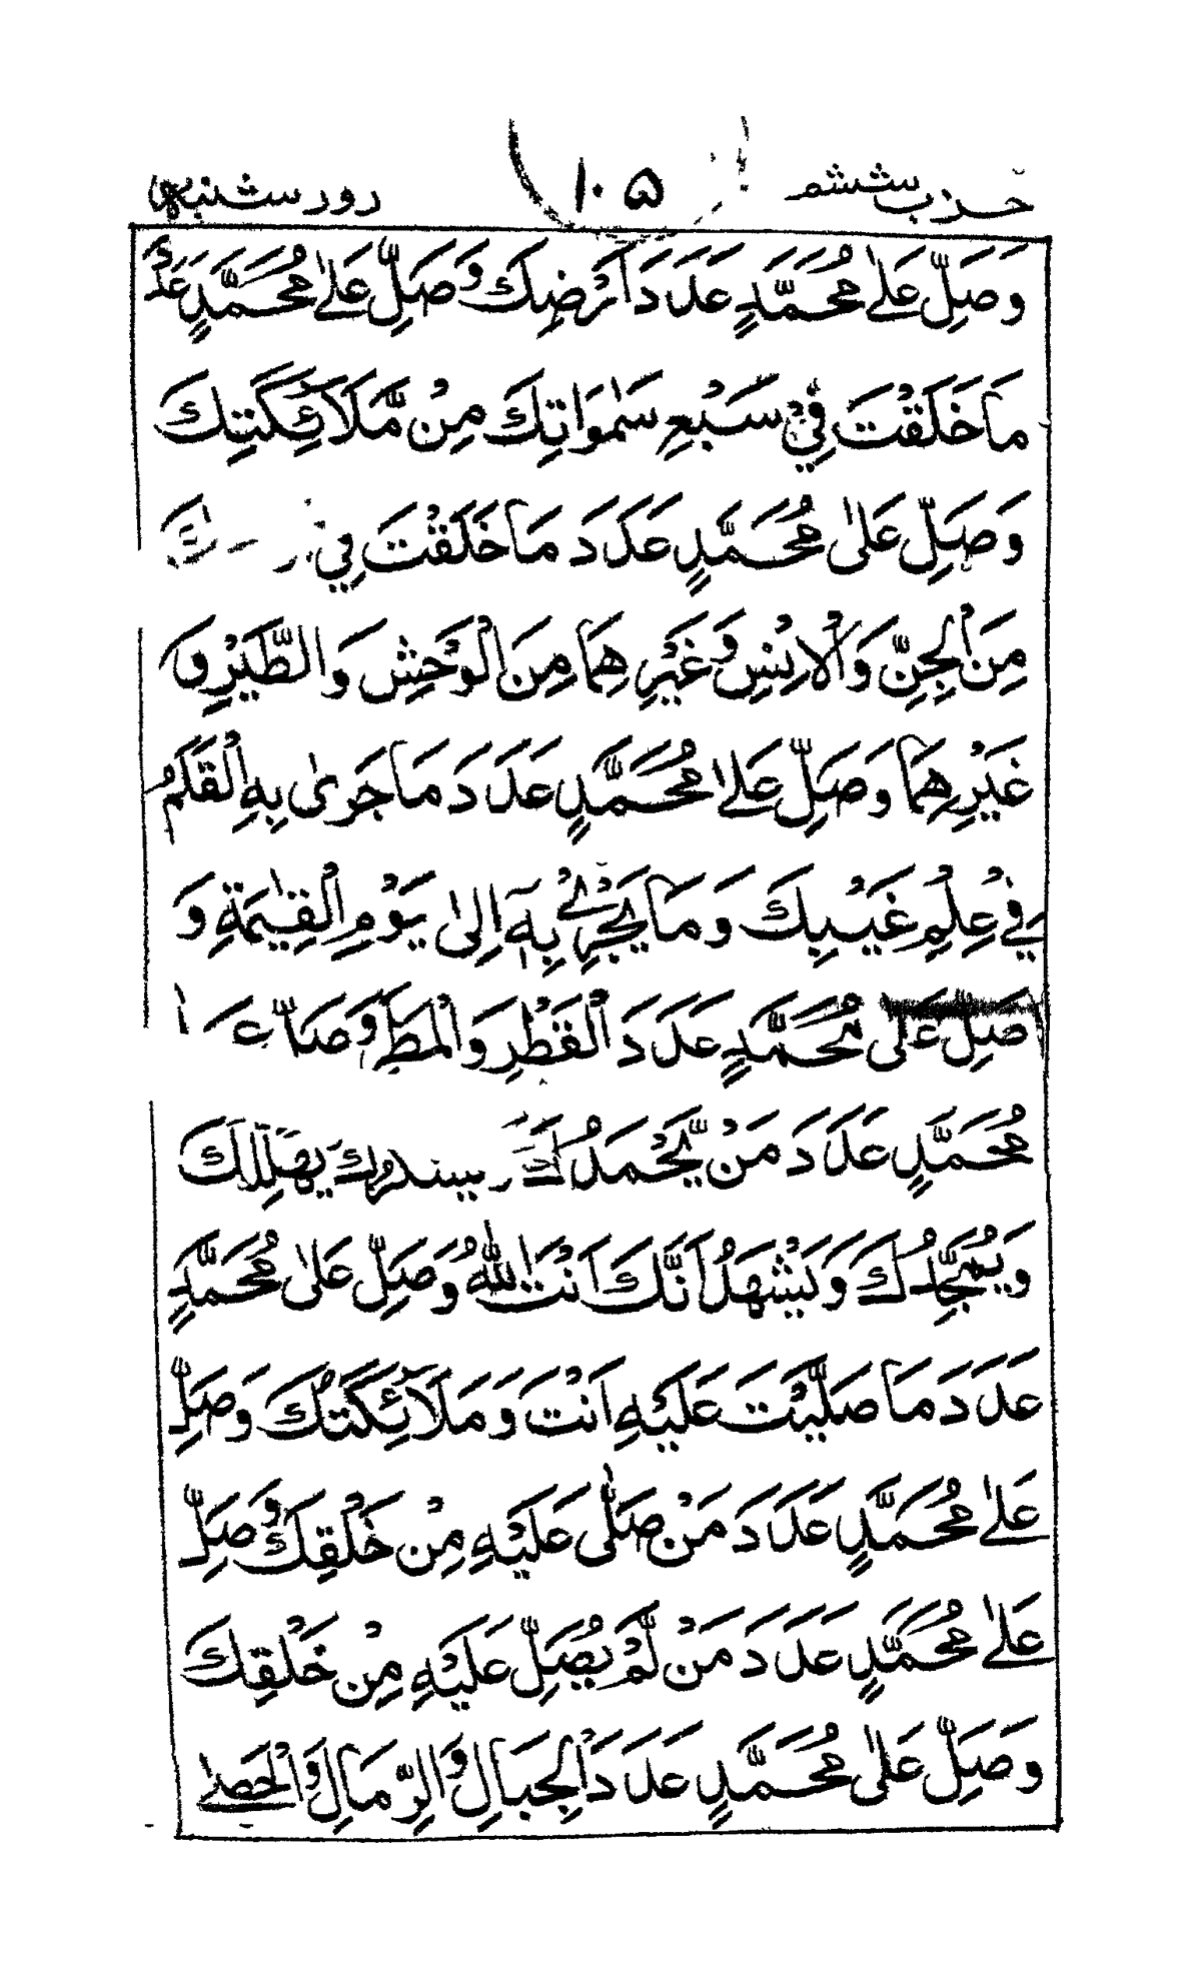 حزب ششم ۱۰۵ روز شنبہ
وَصَلِّ عَلٰى مُحَمَّدٍ عَدَدَ اَرْضِكَ وَصَلِّ عَلٰى مُحَمَّدٍ عَدَدَ
مَا خَلَقْتَ فِيْ سَبْعِ سَمٰوَاتِكَ مِنْ مَّلَائِكَتِكَ
وَصَلِّ عَلٰى مُحَمَّدٍ عَدَدَ مَا خَلَقْتَ فِي
مِنَ الْجِنِّ وَالْاِنْسِ وَغَيْرِهِمَا مِنَ الْوَحْشِ وَالطَّيْرِ وَ
غَيْرِهِمَا وَصَلِّ عَلٰى مُحَمَّدٍ عَدَدَ مَا جَرٰى بِهِ الْقَلَمُ
فِيْ عِلْمِ غَيْبِكَ وَمَا يَجْرِيْ بِهٖ اِلٰى يَوْمِ الْقِيٰمَةِ وَ
صَلِّ عَلٰى مُحَمَّدٍ عَدَدَ الْقَطْرِ وَالْمَطَرِ وَصَلِّ عَلٰى
مُحَمَّدٍ عَدَدَ مَنْ يَّحْمَدُكَ وَيُهَلِّلُكَ
وَيُمَجِّدُكَ وَيَشْهَدُ اَنَّكَ اَنْتَ اللّٰهُ وَصَلِّ عَلٰى مُحَمَّدٍ
عَدَدَ مَا صَلَّيْتَ عَلَيْهِ اَنْتَ وَمَلَآئِكَتُكَ وَصَلِّ
عَلٰى مُحَمَّدٍ عَدَدَ مَنْ صَلّٰى عَلَيْهِ مِنْ خَلْقِكَ وَصَلِّ
عَلٰى مُحَمَّدٍ عَدَدَ مَنْ لَّمْ يُصَلِّ عَلَيْهِ مِنْ خَلْقِكَ
وَصَلِّ عَلٰى مُحَمَّدٍ عَدَدَ الْجِبَالِ وَالرِّمَالِ وَالْحَصٰى